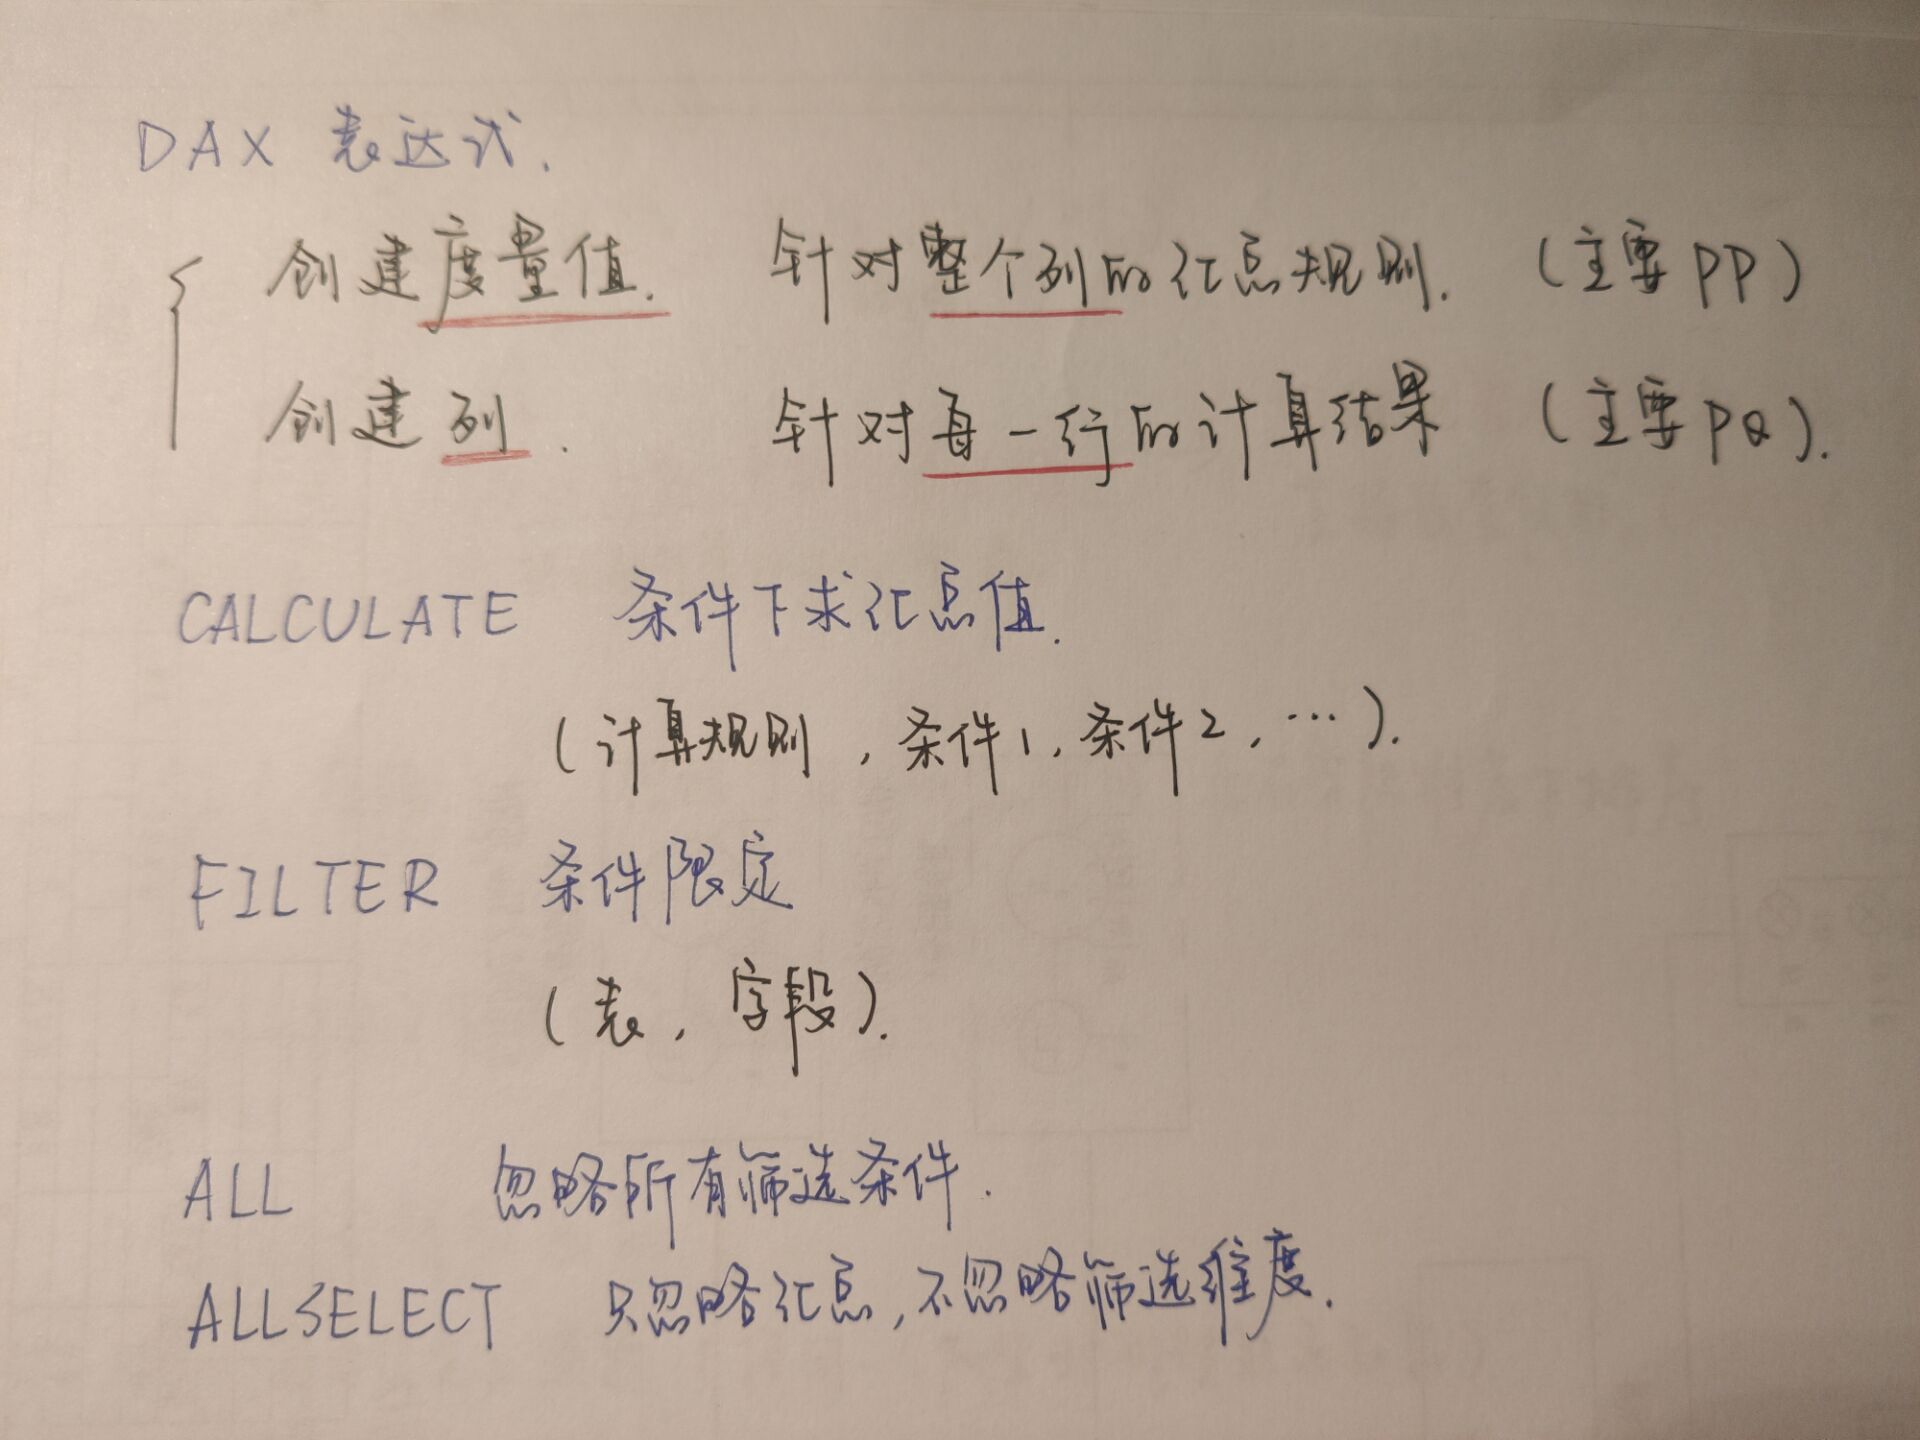 DAX 表达式.
创建度量值. 针对整个列的汇总规则. (主要PP)
创建列. 针对每一行的计算结果 (主要PQ).
CALCULATE 条件下求汇总值.
(计算规则, 条件1, 条件2, …).
FILTER 条件限定
(表, 字段).
ALL 忽略所有筛选条件.
ALLSELECT 只忽略汇总, 不忽略筛选维度.